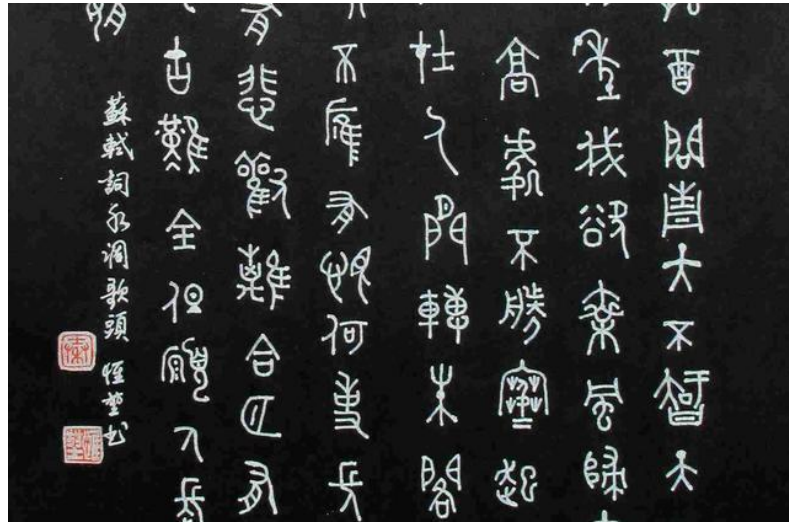 酒問青天不智天
我欲乘風歸
高處不勝寒起
在人間轉朱閣
不應有恨何事長
有悲歡離合月有
古難全但願人長
蘇軾詞水調歌頭